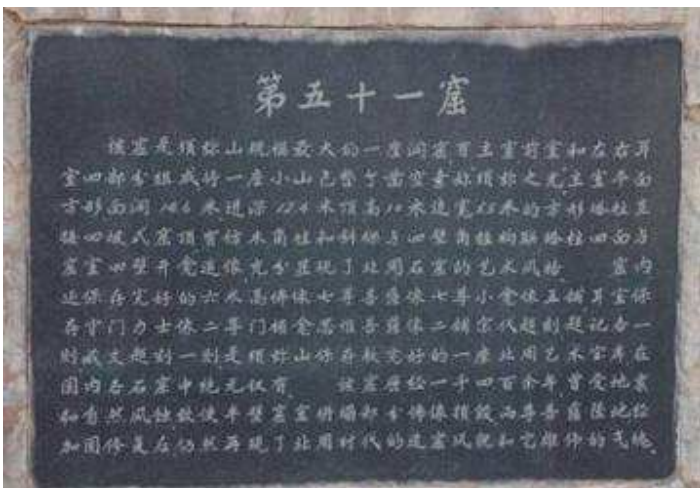 第五十一窟
该窟是须弥山规模最大的一座洞窟有主室前室和左右耳
室四部分组成将一座小山已整个凿空素称须弥之光主室平面
方形面阔14.6米进深12.4米顶高10米边宽5.5米的方形塔柱直
接四坡式窟顶有仿木角柱和斜保与四壁角柱构联塔柱四面与
窟室四壁开龛造像充分显现了北周石窟的艺术风格 窟内
还保存完好的六米高佛像七尊菩萨像七尊小龛像五铺耳室保
存守门力士像二尊门楣龛思惟菩萨像二铺宋代题刻题记各一
则藏文题刻一则是须弥山保存较完好的一座北周艺术宝库在
国内各石窟中绝无仅有 该窟历经一千四百余年曾受地震
和自然风蚀致使半壁窟室坍塌部分佛像损毁两尊菩萨坠地经
加固修复后仍然再现了北周时代的造窟风貌和它雄伟的气魄